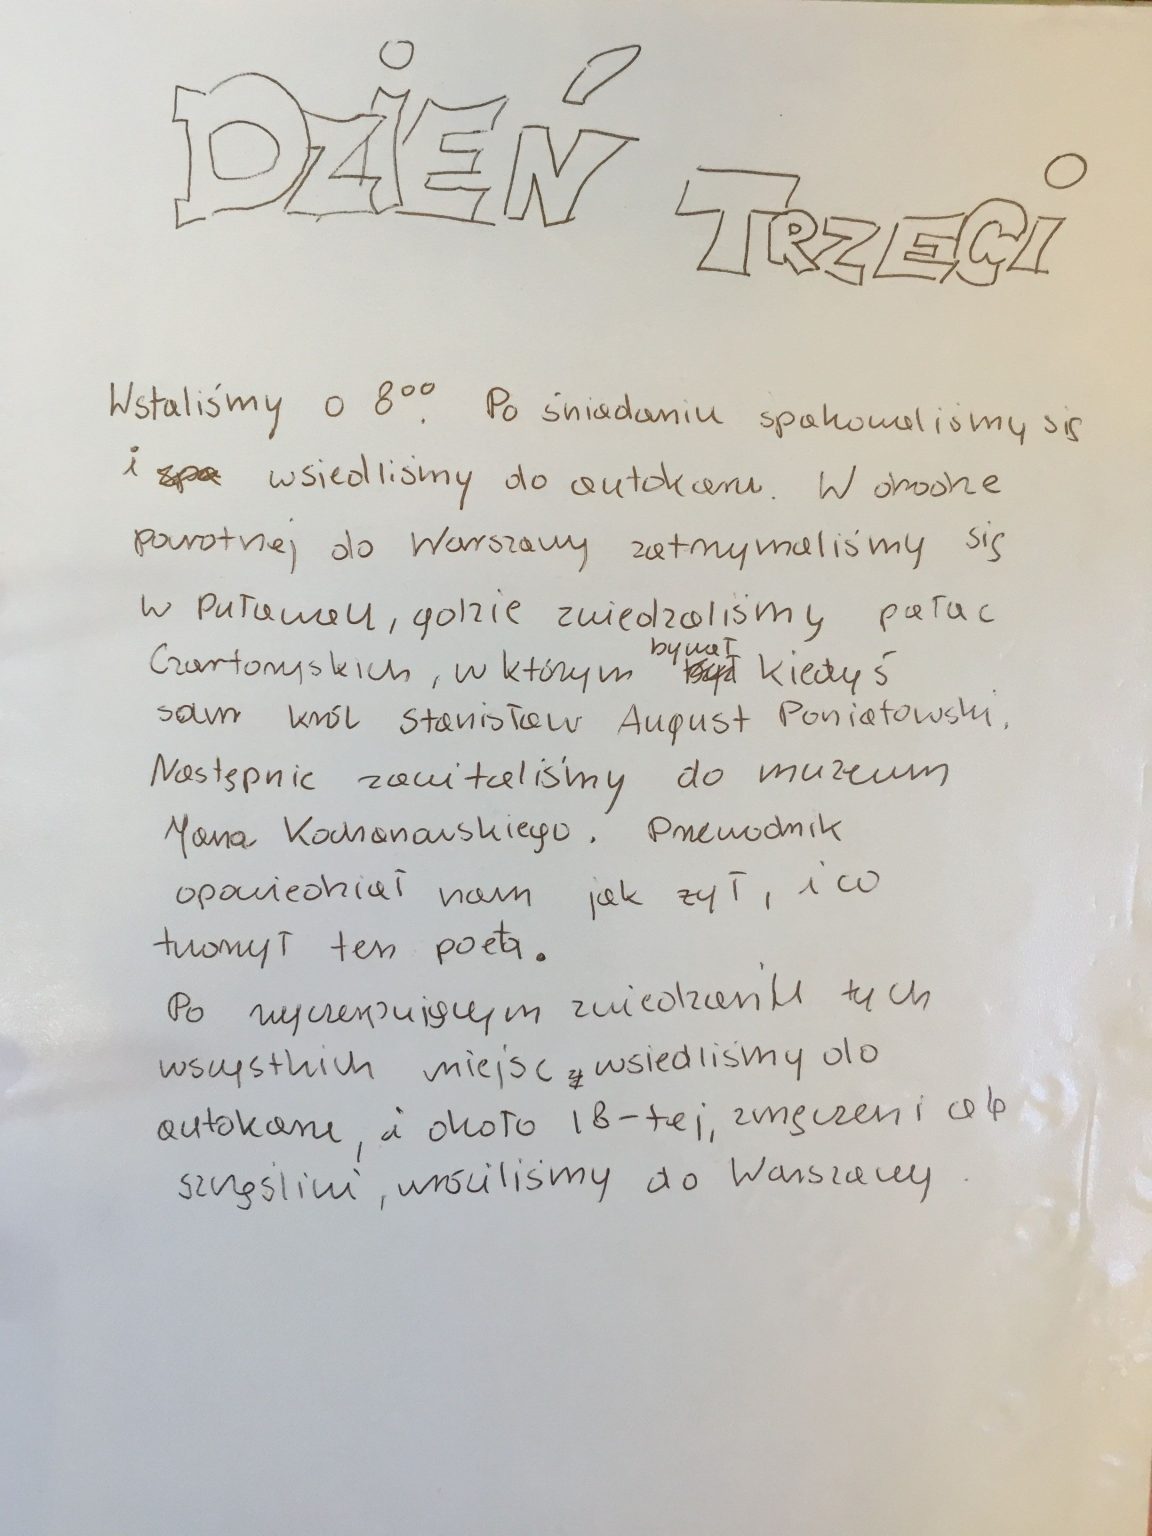 DZIEŃ
TRZECI
Wstaliśmy o 8⁰⁰. Po śniadaniu spakowaliśmy się
i spa wsiedliśmy do autokaru. W drodze
powrotnej do Warszawy zatrzymaliśmy się
w Puławach, gdzie zwiedzaliśmy pałac
Czartoryskich, w którym był bywał kiedyś
sam król Stanisław August Poniatowski.
Następnie zawitaliśmy do muzeum
Jana Kochanowskiego. Przewodnik
opowiedział nam jak żył, i co
tworzył ten poeta.
Po wyczerpującym zwiedzaniu tych
wszystkich miejsc wsiedliśmy do
autokaru, i około 18-tej, zmęczeni ale
szczęśliwi, wróciliśmy do Warszawy.